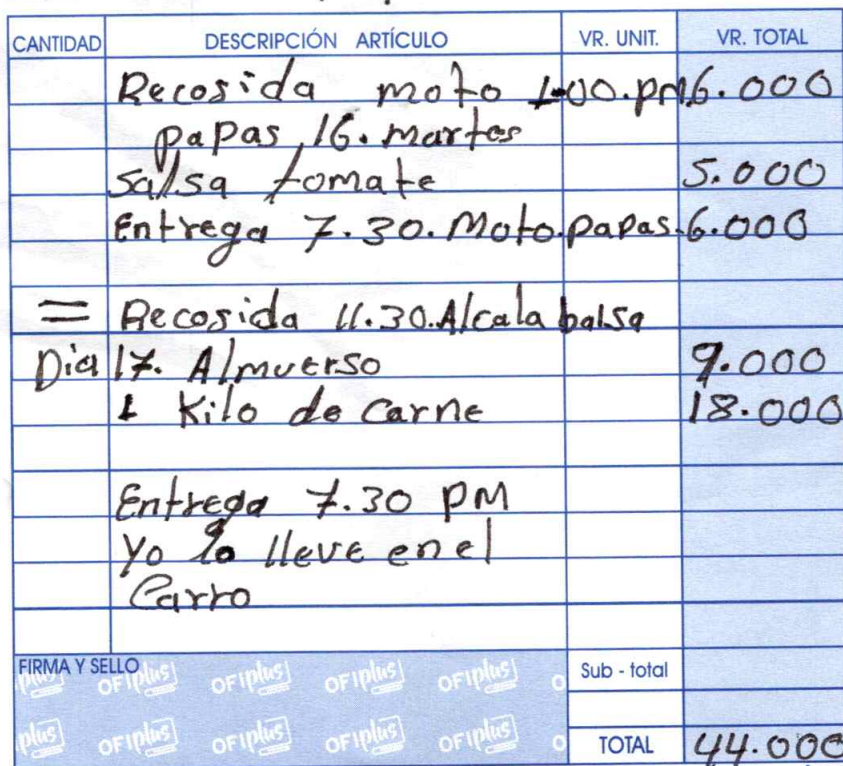 CANTIDAD DESCRIPCIÓN ARTÍCULO VR. UNIT. VR. TOTAL
Recosida moto 1-00.pm 6.000
papas 16. martes
Salsa tomate 5.000
Entrega 7.30. Moto.papas. 6.000
= Recosida 11.30.Alcala balsa
Dia 17. Almuerso 9.000
1 Kilo de Carne 18.000
Entrega 7.30 PM
Yo la lleve en el
Carro
FIRMA Y SELLO Sub - total
plus OFIplus OFIplus OFIplus OFIplus O
plus OFIplus OFIplus OFIplus OFIplus O
TOTAL 44.000